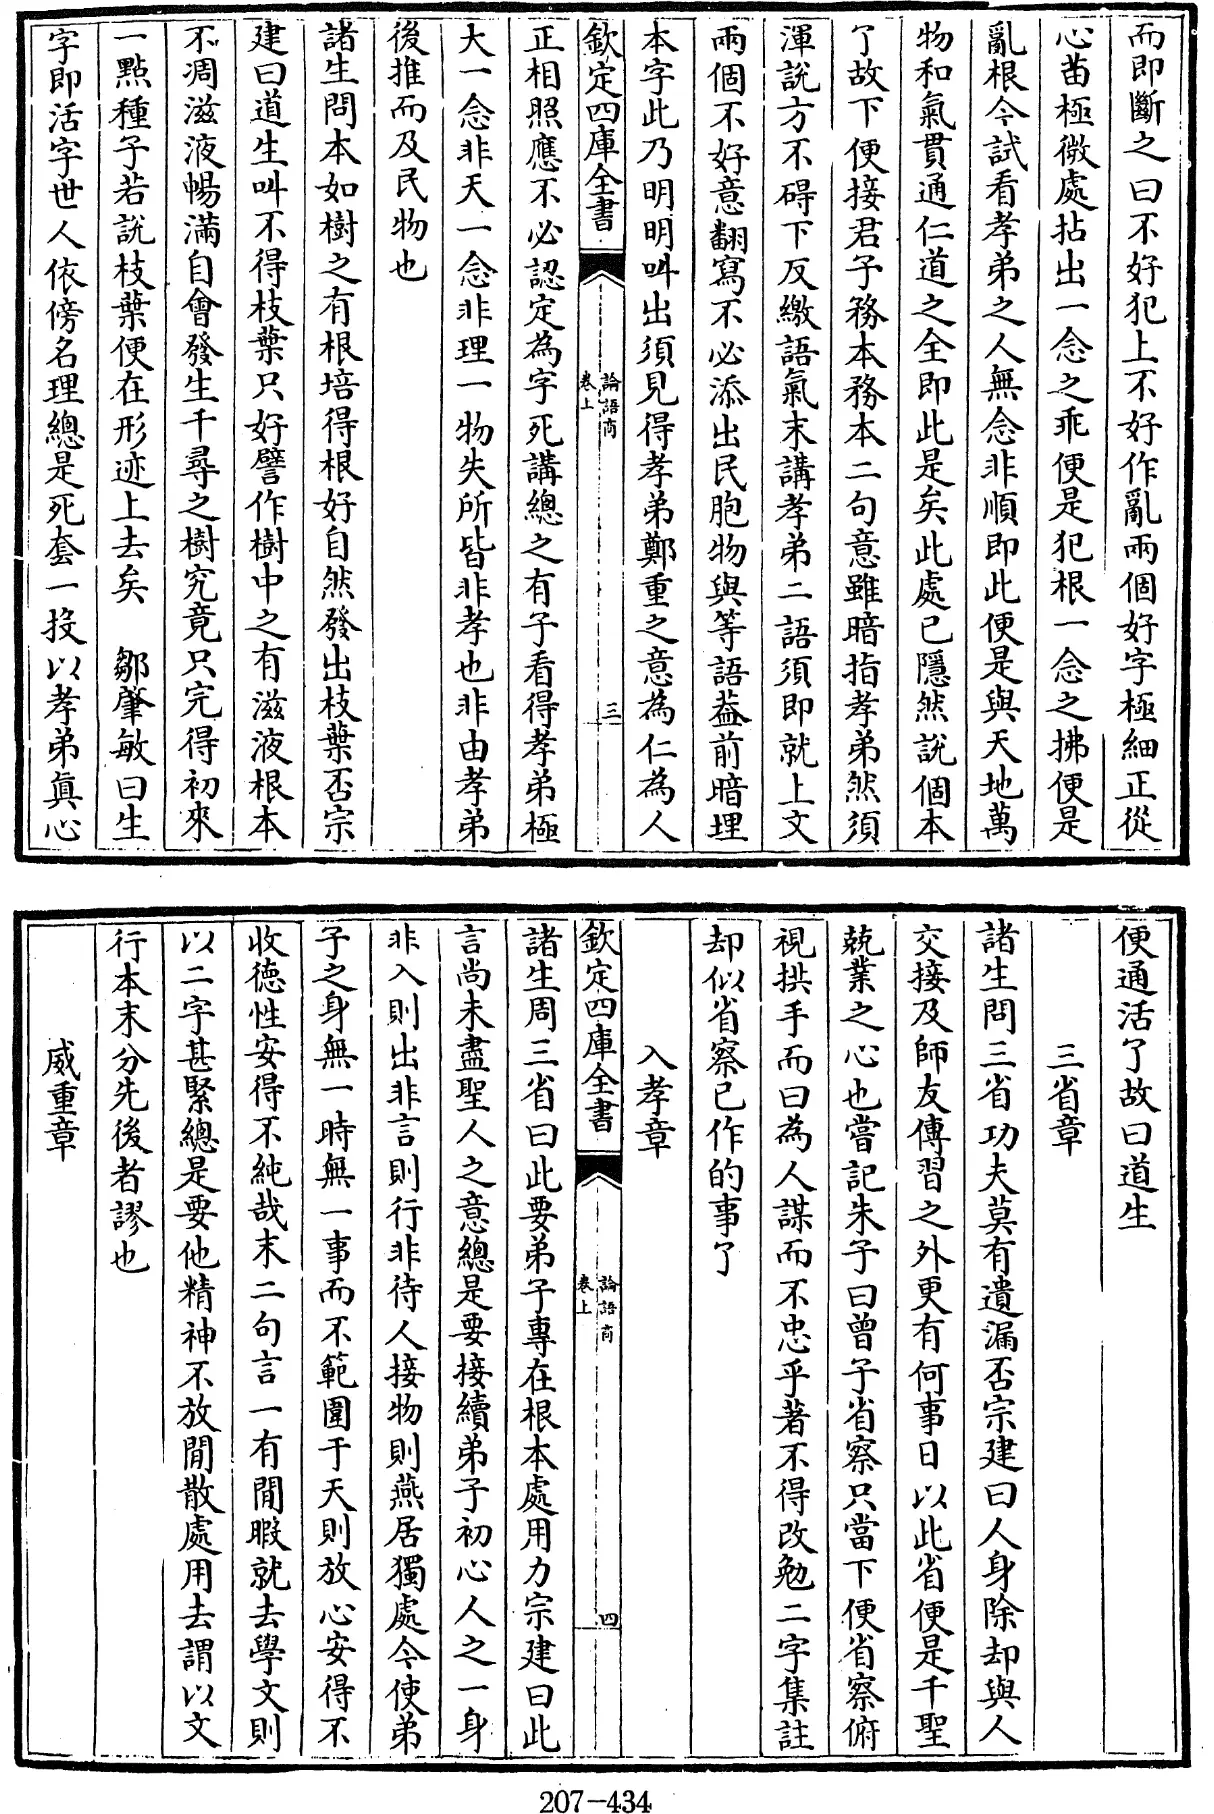 而即斷之曰不好犯上不好作亂兩個好字極細正從
心苗極微處拈出一念之乖便是犯根一念之拂便是
亂根今試看孝弟之人無念非順即此便是與天地萬
物和氣貫通仁道之全即此是矣此處已隱然說個本
了故下便接君子務本務本二句意雖暗指孝弟然須
渾說方不碍下反繳語氣末講孝弟二語須即就上文
兩個不好意翻寫不必添出民胞物與等語葢前暗埋
本字此乃明明叫出須見得孝弟鄭重之意為仁為人
欽定四庫全書
論語商
卷上
三
正相照應不必認定為字死講總之有子看得孝弟極
大一念非天一念非理一物失所皆非孝也非由孝弟
後推而及民物也
諸生問本如樹之有根培得根好自然發出枝葉否宗
建曰道生叫不得枝葉只好譬作樹中之有滋液根本
不凋滋液暢滿自會發生千尋之樹究竟只完得初來
一點種子若説枝葉便在形迹上去矣 鄒肇敏曰生
字即活字世人依傍名理總是死套一投以孝弟真心
便通活了故曰道生
三省章
諸生問三省功夫莫有遺漏否宗建曰人身除却與人
交接及師友傳習之外更有何事日以此省便是千聖
兢業之心也嘗記朱子曰曾子省察只當下便省察俯
視拱手而曰為人謀而不忠乎著不得改勉二字集註
却似省察已作的事了
入孝章
欽定四庫全書
論語商
卷上
四
諸生周三省曰此要弟子專在根本處用力宗建曰此
言尚未盡聖人之意總是要接續弟子初心人之一身
非入則出非言則行非待人接物則燕居獨處今使弟
子之身無一時無一事而不範圍于天則放心安得不
收德性安得不純哉末二句言一有閒暇就去學文則
以二字甚緊總是要他精神不放閒散處用去謂以文
行本末分先後者謬也
威重章
207-434